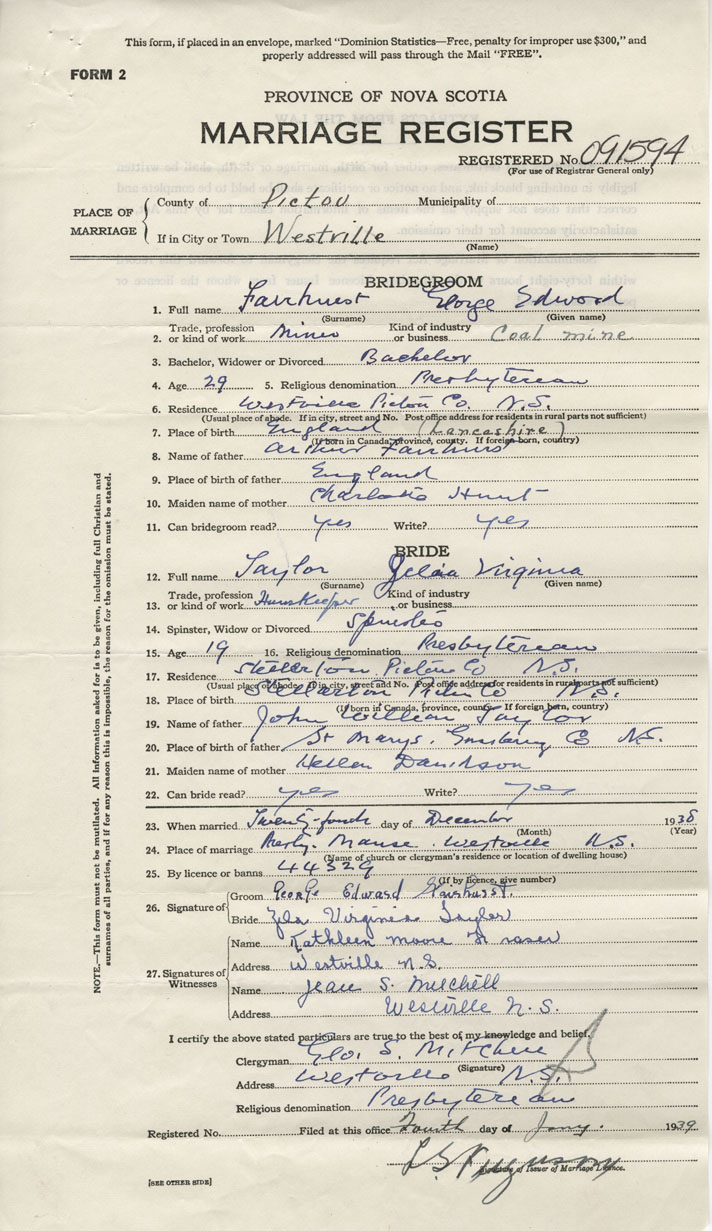 This form, if placed in an envelope, marked "Dominion Statistics—Free, penalty for improper use $300," and
properly addressed will pass through the Mail "FREE".
FORM 2
PROVINCE OF NOVA SCOTIA
MARRIAGE REGISTER
REGISTERED No. 091594
(For use of Registrar General only)
PLACE OF MARRIAGE
County of Pictou Municipality of
If in City or Town Westville
(Name)
BRIDEGROOM
1. Full name Fairhurst George Edward
(Surname) (Given name)
2. Trade, profession or kind of work Miner Kind of industry or business Coal mine
3. Bachelor, Widower or Divorced Bachelor
4. Age 29 5. Religious denomination Presbyterian
6. Residence Westville Pictou Co. N.S.
(Usual place of abode. If in city, street and No. Post office address for residents in rural parts not sufficient)
7. Place of birth England (Lancashire)
(If born in Canada, province, county. If foreign born, country)
8. Name of father Arthur Fairhurst
9. Place of birth of father England
10. Maiden name of mother Charlotte Hunt
11. Can bridegroom read? yes Write? yes
BRIDE
12. Full name Taylor Virginia
(Surname) (Given name)
13. Trade, profession or kind of work HouseKeeper Kind of industry or business
14. Spinster, Widow or Divorced Spinster
15. Age 19 16. Religious denomination Presbyterian
17. Residence Stellarton Pictou Co N.S.
(Usual place of abode. If in city, street and No. Post office address for residents in rural parts not sufficient)
18. Place of birth Stellarton Pictou Co N.S.
(If born in Canada, province, county. If foreign born, country)
19. Name of father John William Taylor
20. Place of birth of father St Marys. Co N.S.
21. Maiden name of mother Hellen Davidson
22. Can bride read? yes Write? yes
23. When married Twenty-fourth day of December 1938
(Month) (Year)
24. Place of marriage Presby. Manse Westville N.S.
(Name of church or clergyman's residence or location of dwelling house)
25. By licence or banns 44329
(If by licence, give number)
26. Signature of
Groom George Edward Fairhurst.
Bride Zela Virginia Taylor
27. Signatures of Witnesses
Name Kathleen Moore Fraser
Address Westville N.S.
Name Jean S. Mitchell
Address Westville N.S.
I certify the above stated particulars are true to the best of my knowledge and belief.
Clergyman Geo. S. Mitchell
(Signature)
Address Westville N.S.
Religious denomination Presbyterian
Registered No. Filed at this office Fourth day of Jany. 1939
Signature of Issuer of Marriage Licence.
[SEE OTHER SIDE]
NOTE.—This form must not be mutilated. All information asked for is to be given, including full Christian and
surnames of all parties, and if for any reason this is impossible, the reason for the omission must be stated.